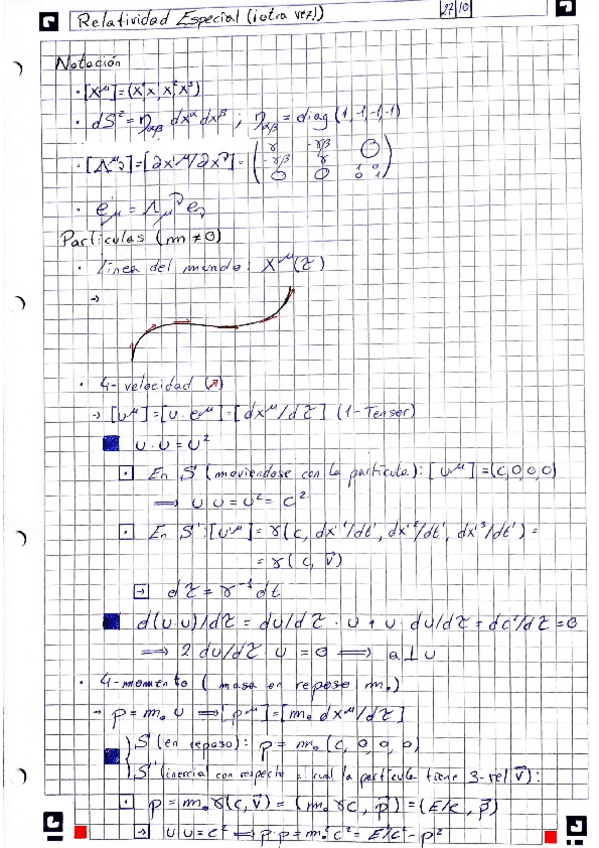 Relatividad Especial (¡otra vez!) 27/10
Notación
· [x^μ] = (x⁰, x¹, x², x³)
· dS² = η_αβ dx^α dx^β ; η_αβ = diag (1, -1, -1, -1)
· [Λ^μ_ν] = [∂x'^μ/∂x^ν] = ( γ -γβ 0
-γβ γ
0 0 1 0
0 1 )
· e'_μ = Λ_μ^ν e_ν
Partículas (m ≠ 0)
· línea del mundo: x^μ(τ)
→
· 4-velocidad (↗)
→ [u^μ] = [u · e^μ] = [dx^μ/dτ] (1-Tensor)
u · u = u²
En S (moviéndose con la partícula): [u^μ] = (c, 0, 0, 0)
⟹ u u = u² = c²
En S': [u'^μ] = γ(c, dx'¹/dt', dx'²/dt', dx'³/dt') =
= γ(c, v⃗)
→ dτ = γ⁻¹ dt
d(u·u)/dτ = du/dτ · u + u · du/dτ = dc²/dτ = 0
⟹ 2 du/dτ u = 0 ⟹ a ⊥ u
· 4-momento (masa en reposo m₀)
→ p = m₀ u ⟹ [p^μ] = [m₀ dx^μ/dτ]
S (en reposo): p = m₀ (c, 0, 0, 0)
S' (inercial con respecto a cual la partícula tiene 3-vel v⃗):
p = m₀ γ(c, v⃗) = (m₀ γc, p⃗) = (E/c, p⃗)
→ u u = c² ⟹ p·p = m₀² c² = E²/c² - p²